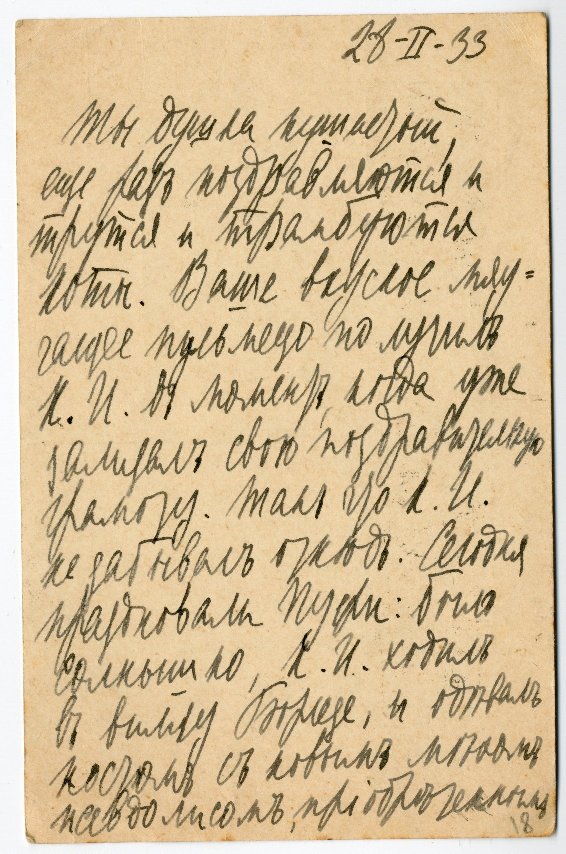 28-II-33
Ты душка пушистый,
еще разъ поздравляются и
трутся и трамбуются
коты. Ваше вкусное мяу=
гащее письмецо получилъ
К. И. въ моментъ, когда уже
залидалъ свою поздравительную
грамоту. Такъ что К. И.
не забывалъ отнюдь. Сегодня
праздновали Пурри: было
солнышко, К. И. ходилъ
въ виллу Боргезе, и одѣвалъ
костюмъ съ новымъ мѣхомъ
псевдолисомъ, пріобрѣтеннымъ
18